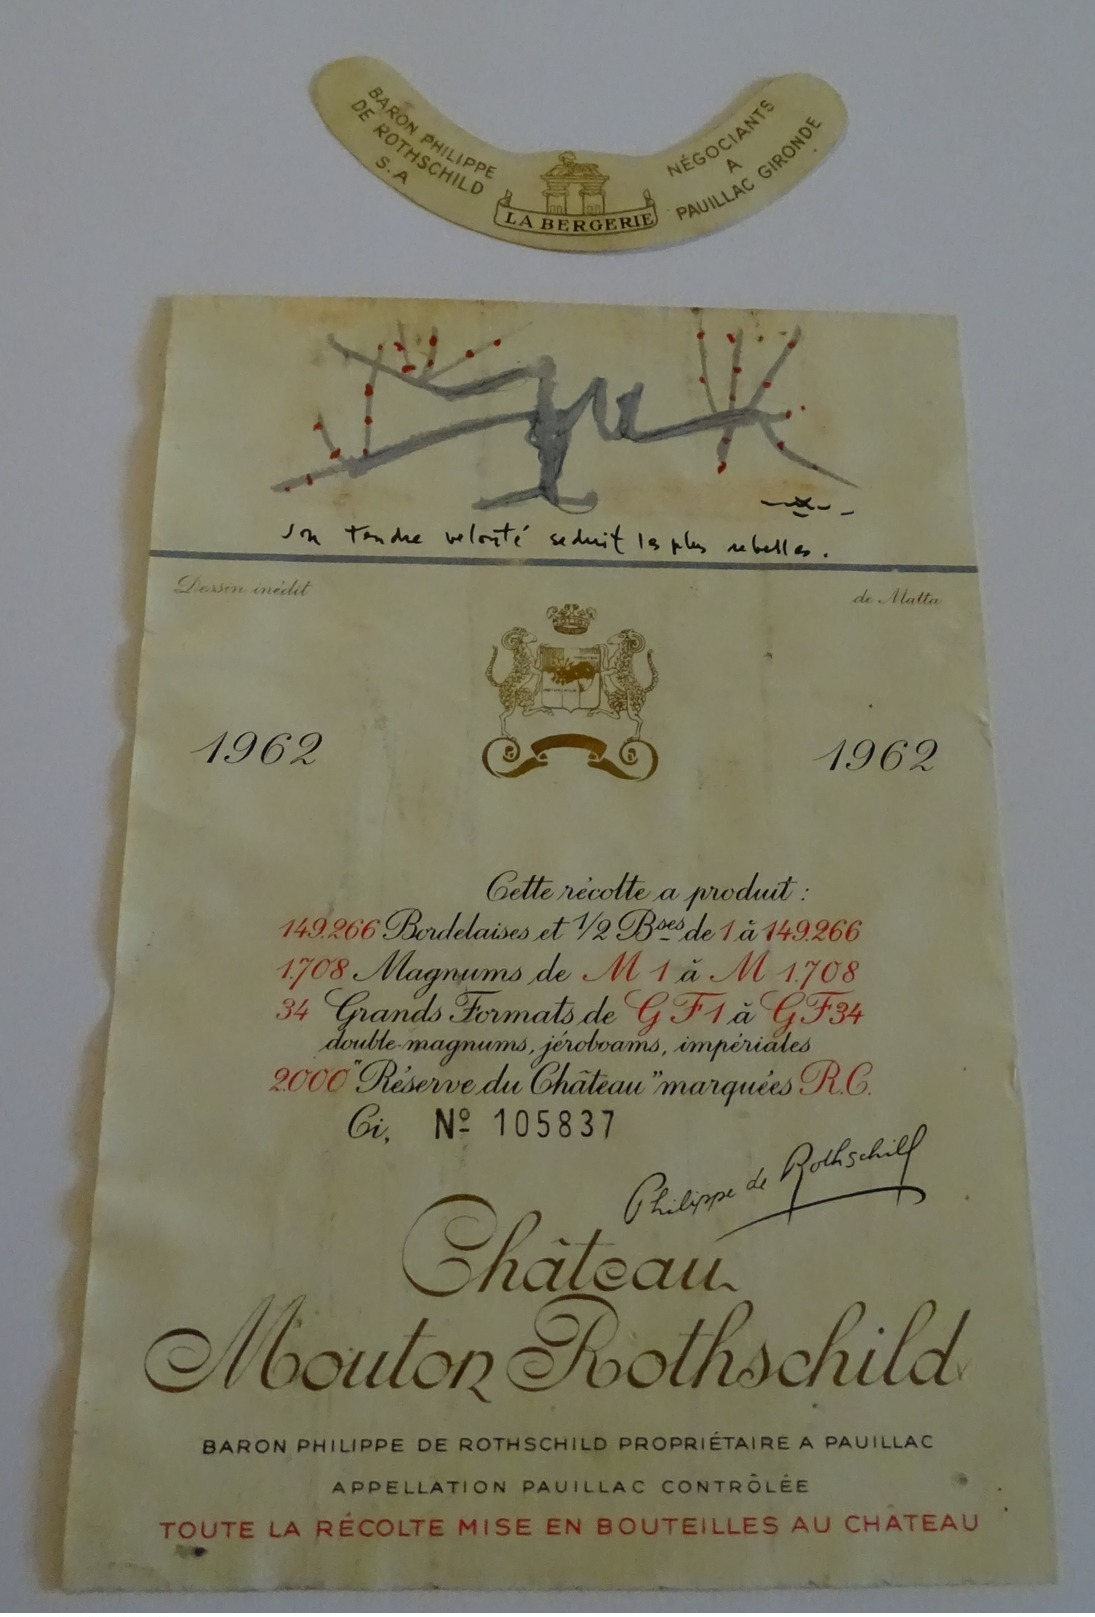 BARON PHILIPPE
DE ROTHSCHILD
S.A
LA BERGERIE
NÉGOCIANTS
A
PAUILLAC GIRONDE
Son tendre velouté séduit les plus rebelles.
Dessin inédit
de Matta
1962
1962
Cette récolte a produit :
149.266 Bordelaises et 1/2 Bses de 1 à 149.266
1.708 Magnums de M 1 à M 1.708
34 Grands Formats de G F 1 à G F 34
double-magnums, jéroboams, impériales
2.000 "Réserve du Château" marquées R.C.
Ci, Nº 105837
Philippe de Rothschild
Château
Mouton Rothschild
BARON PHILIPPE DE ROTHSCHILD PROPRIÉTAIRE A PAUILLAC
APPELLATION PAUILLAC CONTRÔLÉE
TOUTE LA RÉCOLTE MISE EN BOUTEILLES AU CHÂTEAU